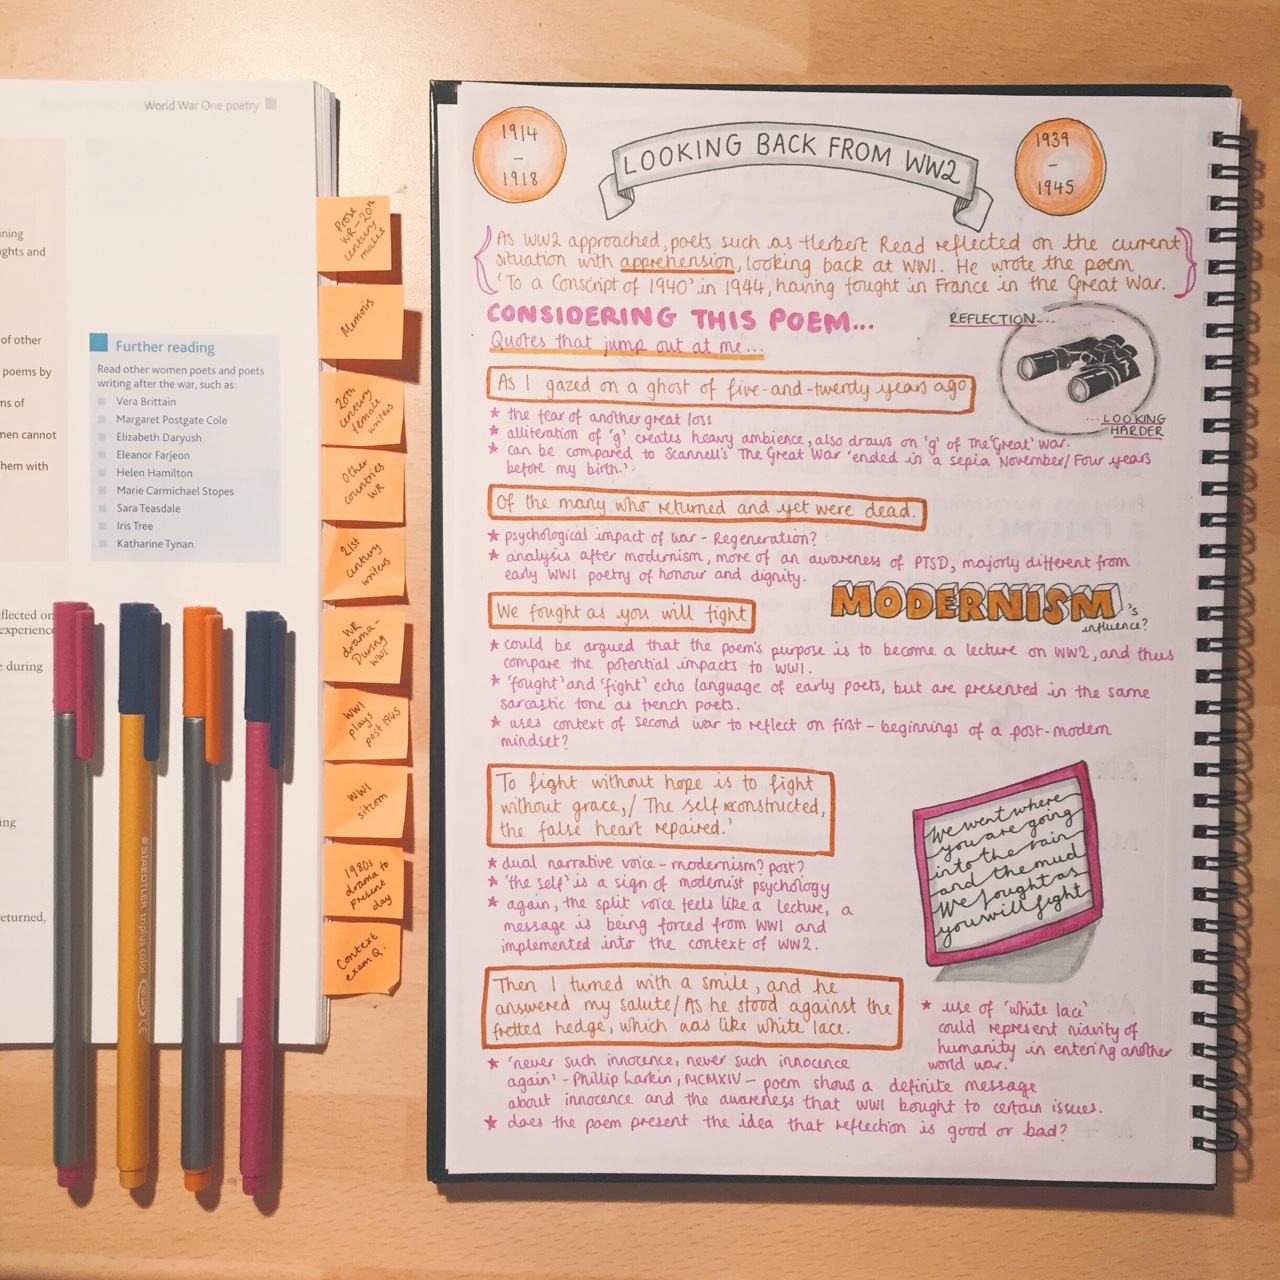 World War One poetry
nning
ughts and
of other
poems by
ms of
men cannot
hem with
Further reading
Read other women poets and poets
writing after the war, such as:
Vera Brittain
Margaret Postgate Cole
Elizabeth Daryush
Eleanor Farjeon
Helen Hamilton
Marie Carmichael Stopes
Sara Teasdale
Iris Tree
Katharine Tynan.
eflected on
experience
e during
ing
eturned,
Prose
WR - 20th
century
males
Memoirs
20th
century
female
writers
Other
countries
WR
21st
century
writers
WR
drama-
During
WW1
WW1
plays
post 1945
WW1
sitcom
1980s
drama to
present
day
Context
exam Q.
STAEDTLER triplus color
1914
-
1918
LOOKING BACK FROM WW2
1939
-
1945
As WW2 approached, poets such as Herbert Read reflected on the current
situation with apprehension, looking back at WW1. He wrote the poem
'To a Conscript of 1940' in 1944, having fought in France in the Great War.
CONSIDERING THIS POEM...
Quotes that jump out at me...
REFLECTION...
...LOOKING
HARDER
As I gazed on a ghost of five-and-twenty years ago
* the fear of another great loss
* alliteration of 'g' creates heavy ambience, also draws on 'g' of The 'Great' War.
* can be compared to Scannell's The Great War 'ended in a sepia November/ Four years
before my birth.'
Of the many who returned and yet were dead.
* psychological impact of war - Regeneration?
* analysis after modernism, more of an awareness of PTSD, majorly different from
early WW1 poetry of honour and dignity.
MODERNISM's
influence?
We fought as you will fight
* could be argued that the poem's purpose is to become a lecture on WW2, and thus
compare the potential impacts to WW1.
* 'fought' and 'fight' echo language of early poets, but are presented in the same
sarcastic tone as trench poets.
* uses context of second war to reflect on first - beginnings of a post-modern
mindset?
To fight without hope is to fight
without grace,/ The self reconstructed,
the false heart repaired.'
* dual narrative voice - modernism? post?
* 'the self' is a sign of modernist psychology
* again, the split voice feels like a lecture, a
message is being forced from WW1 and
implemented into the context of WW2.
We went where
you are going
into the rain
and the mud
We fought as
you will fight
Then I turned with a smile, and he
answered my salute/ As he stood against the
fretted hedge, which was like white lace.
* use of 'white lace'
could represent niavity of
humanity in entering another
world war.
* 'never such innocence, never such innocence
again' - Phillip Larkin, MCMXIV - poem shows a definite message
about innocence and the awareness that WW1 bought to certain issues.
* does the poem present the idea that reflection is good or bad?